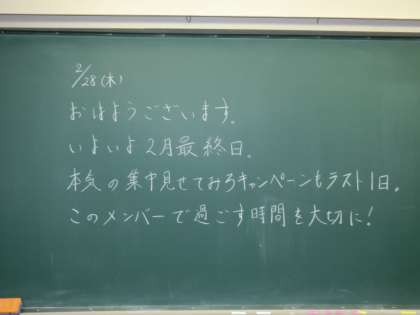 2/28(木)
おはようございます。
いよいよ2月最終日。
本気の集中見せてみろキャンペーンもラスト1日。
このメンバーで過ごす時間を大切に!